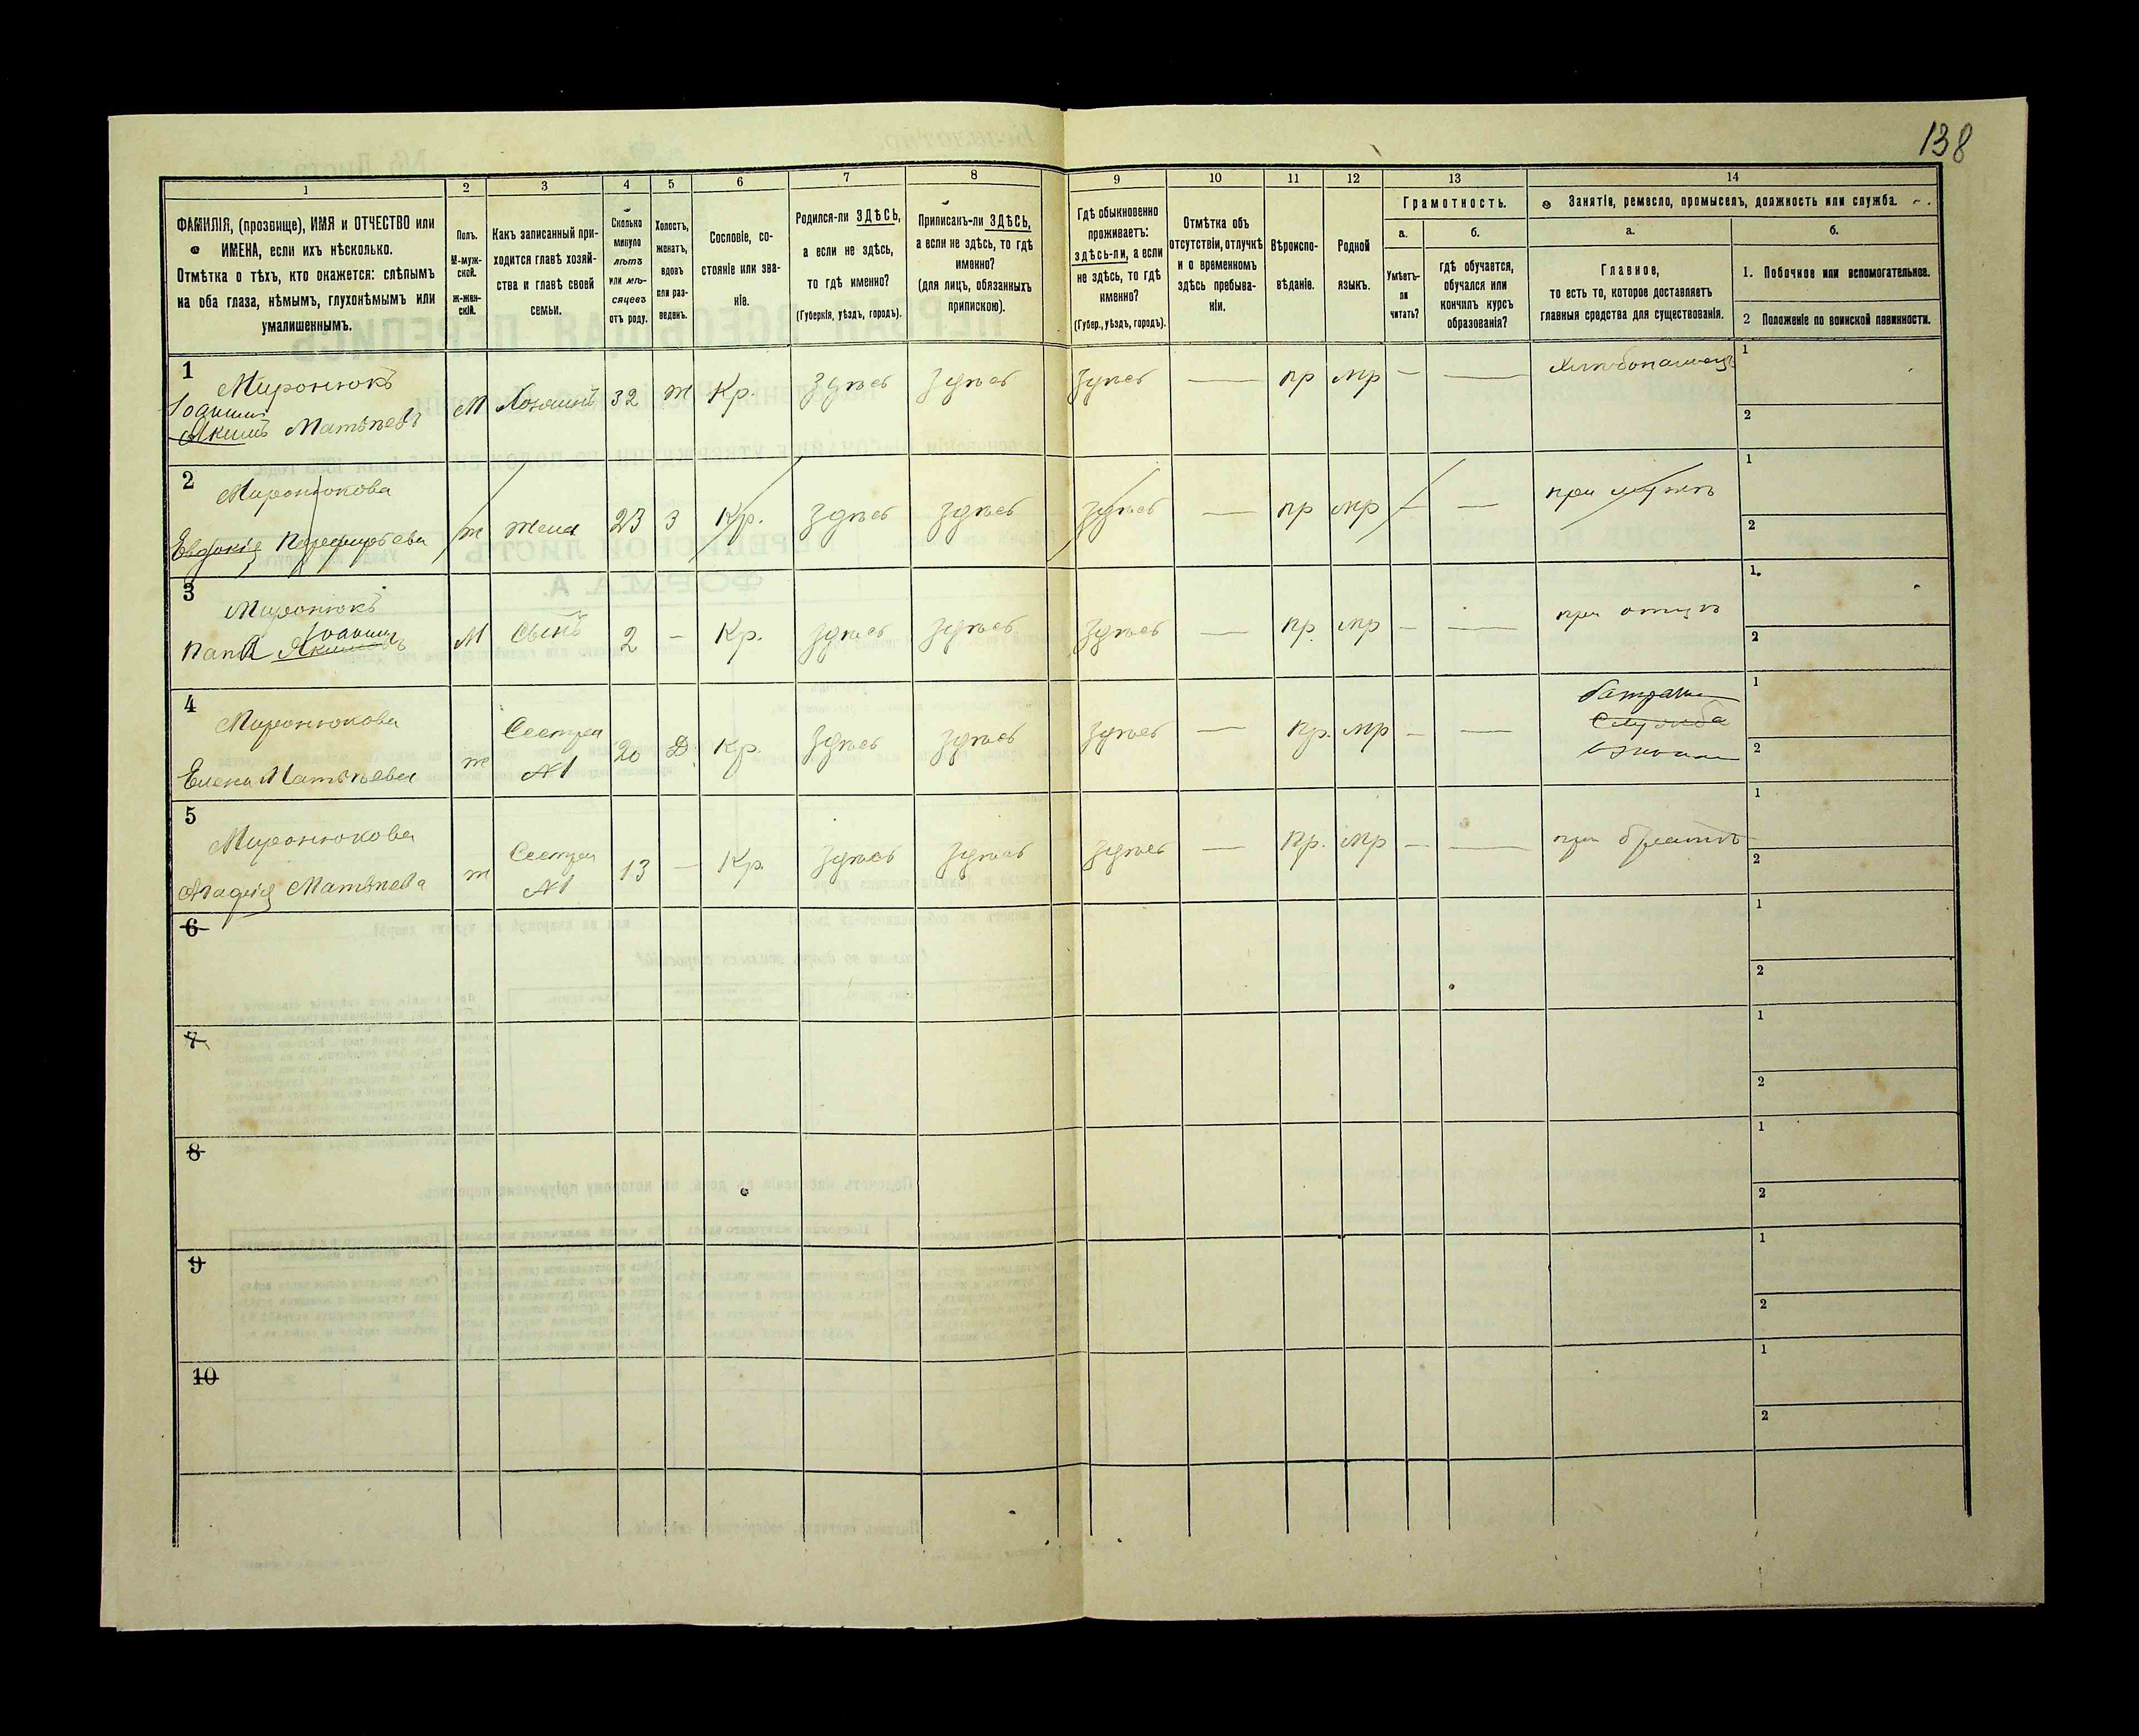 138
1
2
3
4
5
6
7
8
9
10
11
12
13
14
ФАМИЛІЯ, (прозвище), ИМЯ и ОТЧЕСТВО или
ИМЕНА, если ихъ нѣсколько.
Отмѣтка о тѣхъ, кто окажется: слѣпымъ
на оба глаза, нѣмымъ, глухонѣмымъ или
умалишеннымъ.
Полъ.
М-муж-
ской.
Ж-жен-
скій.
Какъ записанный при-
ходится главѣ хозяй-
ства и главѣ своей
семьи.
Сколько
минуло
лѣтъ
или мѣ-
сяцевъ
отъ роду.
Холостъ,
женатъ,
вдовъ
или раз-
веденъ.
Сословіе, со-
стояніе или зва-
ніе.
Родился-ли ЗДѢСЬ,
а если не здѣсь,
то гдѣ именно?
(Губернія, уѣздъ, городъ).
Приписанъ-ли ЗДѢСЬ,
а если не здѣсь, то гдѣ
именно?
(для лицъ, обязанныхъ
припискою).
Гдѣ обыкновенно
проживаетъ:
здѣсь-ли, а если
не здѣсь, то гдѣ
именно?
(Губер., уѣздъ, городъ).
Отмѣтка объ
отсутствіи, отлучкѣ
и о временномъ
здѣсь пребыва-
ніи.
Вѣроиспо-
вѣданіе.
Родной
языкъ.
Грамотность.
а.
Умѣетъ-
ли
читать?
б.
гдѣ обучается,
обучался или
кончилъ курсъ
образованія?
Занятіе, ремесло, промыселъ, должность или служба.
а.
Главное,
то есть то, которое доставляетъ
главныя средства для существованія.
б.
1. Побочное или вспомогательное.
2 Положеніе по воинской повинности.
1
Миронюкъ
Іоакимъ
Якимъ Матвѣевъ
М Хозяинъ 32 ж Кр. Здѣсь Здѣсь Здѣсь — пр мр — — Хлѣбопашецъ
1
2
2
Миронюкова
Евдокія
ж жена 23 З Кр. Здѣсь Здѣсь Здѣсь — пр мр — — при мужѣ
1
2
3
Миронюкъ
Іоаким
М Сынъ 2 - Кр. Здѣсь Здѣсь Здѣсь — пр. мр — — при отцѣ
1.
2
4
Миронюкова
Елена Матвѣева
ж Сестра №1 20 Д. Кр. Здѣсь Здѣсь Здѣсь — пр. мр — —
Служба
1
2
5
Миронюкова
Матвѣева
ж Сестра №1 13 — Кр. Здѣсь Здѣсь Здѣсь — Пр. мр — — при братѣ
1
2
6
1
2
7
1
2
8
1
2
9
1
2
10
1
2